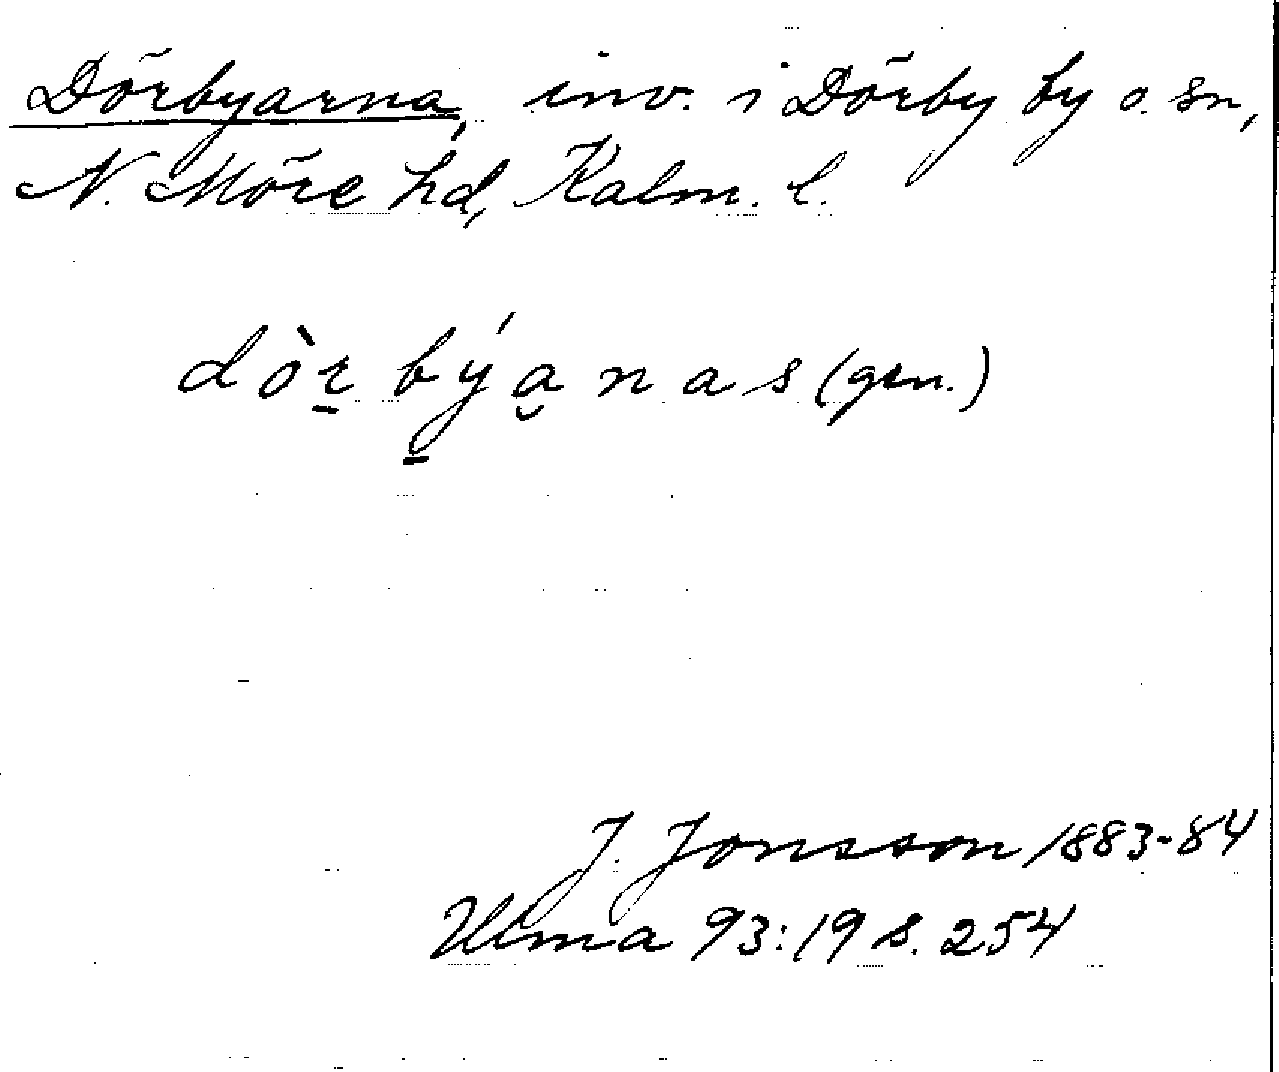 Dörbyarna, inv. i Dörby by o. sn,
N. Möre hd, Kalm. l.
dòr̲býa̮nas (gen.)
J. Jonsson 1883-84
Ulma 93:19 s. 254